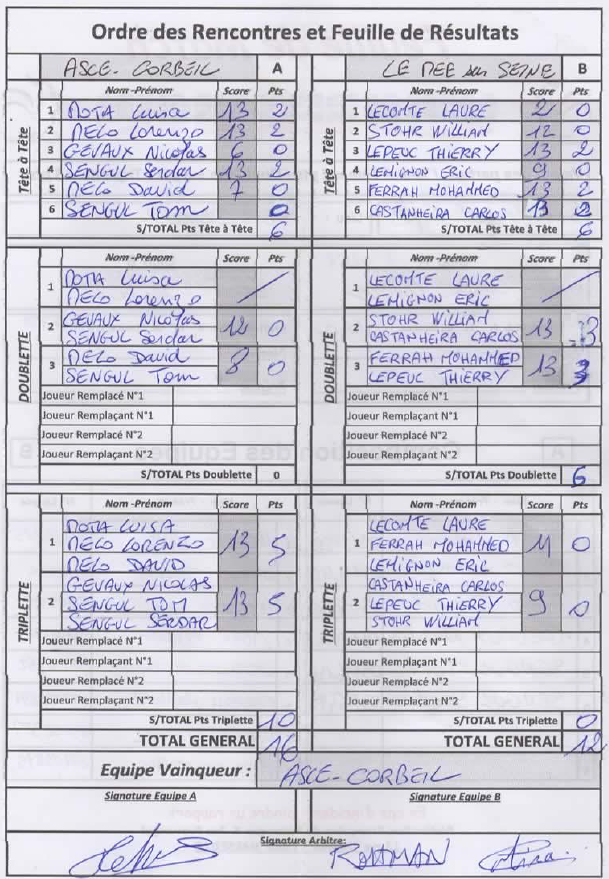 Ordre des Rencontres et Feuille de Résultats
ASCE-CORBEIL A
Nom-Prénom Score Pts
Tête à Tête
1 MOTA Luisa 13 2
2 MELO Lorenzo 13 2
3 GEVAUX Nicolas 6 0
4 SENGUL Serdar 13 2
5 MELO David 7 0
6 SENGUL Tom 0
S/TOTAL Pts Tête à Tête 6
LE MEE sur SEINE B
Nom-Prénom Score Pts
Tête à Tête
1 LECOMTE LAURE 2 0
2 STOHR WILLIAM 12 0
3 LEPEUC THIERRY 13 2
4 LEMIGNON ERIC 9 0
5 FERRAH MOHAMMED 13 2
6 CASTANHEIRA CARLOS 13 2
S/TOTAL Pts Tête à Tête 6
Nom-Prénom Score Pts
DOUBLETTE
1 MOTA Luisa
MELO Lorenzo
2 GEVAUX Nicolas 12 0
SENGUL Serdar
3 MELO David 8 0
SENGUL Tom
Joueur Remplacé N°1
Joueur Remplaçant N°1
Joueur Remplacé N°2
Joueur Remplaçant N°2
S/TOTAL Pts Doublette 0
Nom-Prénom Score Pts
DOUBLETTE
1 LECOMTE LAURE
LEMIGNON ERIC
2 STOHR WILLIAM 13 3
CASTANHEIRA CARLOS
3 FERRAH MOHAMMED 13 3
LEPEUC THIERRY
Joueur Remplacé N°1
Joueur Remplaçant N°1
Joueur Remplacé N°2
Joueur Remplaçant N°2
S/TOTAL Pts Doublette 6
Nom-Prénom Score Pts
TRIPLETTE
MOTA LUISA
1 MELO LORENZO 13 5
MELO DAVID
GEVAUX NICOLAS
2 SENGUL TOM 13 5
SENGUL SERDAR
Joueur Remplacé N°1
Joueur Remplaçant N°1
Joueur Remplacé N°2
Joueur Remplaçant N°2
S/TOTAL Pts Triplette 10
TOTAL GENERAL 16
Nom-Prénom Score Pts
TRIPLETTE
LECOMTE LAURE
1 FERRAH MOHAMMED 11 0
LEMIGNON ERIC
CASTANHEIRA CARLOS
2 LEPEUC THIERRY 9 0
STOHR WILLIAM
Joueur Remplacé N°1
Joueur Remplaçant N°1
Joueur Remplacé N°2
Joueur Remplaçant N°2
S/TOTAL Pts Triplette 0
TOTAL GENERAL 12
Equipe Vainqueur : ASCE-CORBEIL
Signature Equipe A
Signature Equipe B
Signature Arbitre: